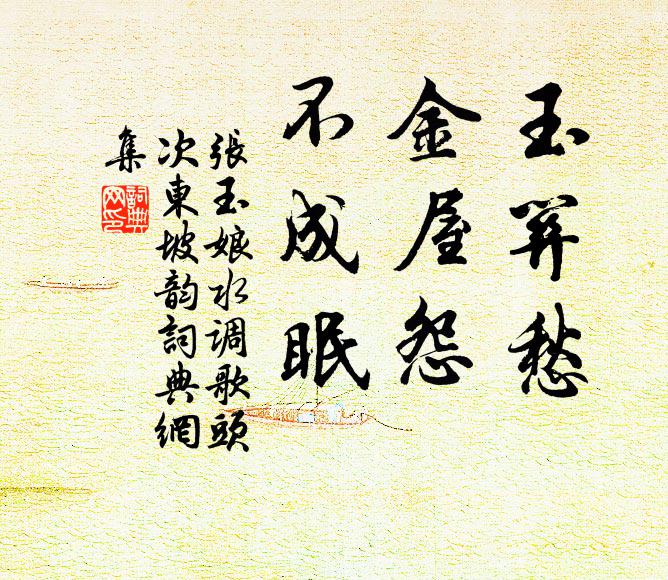 玉關愁
金屋怨
不成眠
張玉娘水调歌頭
次東坡韵詞典網
集
詞典
网印